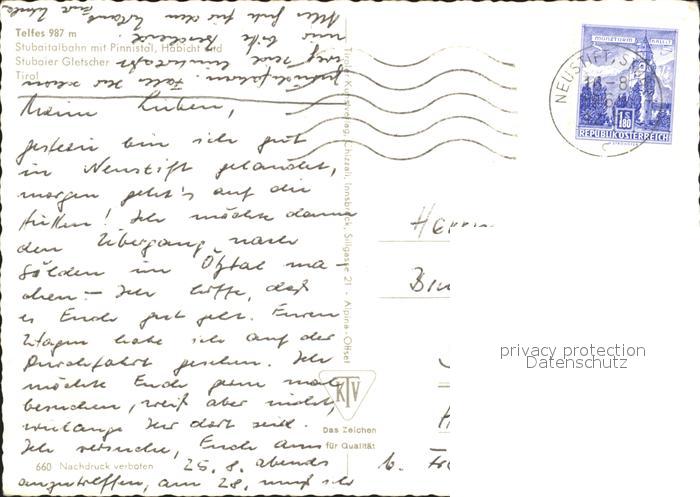 Telfes 987 m
Stubaitalbahn mit Pinnistal, Habicht und
Stubaier Gletscher
Tirol
Meine Lieben,
gestern bin ich gut
in Neustift gelandet,
morgen geht's auf die
Hütten! Ich möchte dann
den Übergang nach
Sölden im Ötztal ma-
chen – Ich hoffe, daß
es Euch gut geht. Euren
Wagen habe ich auf der
Durchfahrt gesehen. Ich
möchte Euch gern mal
besuchen, weiß aber nicht,
wielange Ihr dort seid.
Ich versuche, Euch am
25. 8. abends
anzutreffen, am 28. muß ich
660 Nachdruck verboten
Tiroler Kunstverlag Chizzali, Innsbruck, Sillgasse 21 - Alpina-Offset
KTV
Das Zeichen
für Qualität
NEUSTIFT, ST
MÜNZTURM HALL I. T.
S 1.80
REPUBLIK ÖSTERREICH
Herrn
b. Fr
privacy protection
Datenschutz